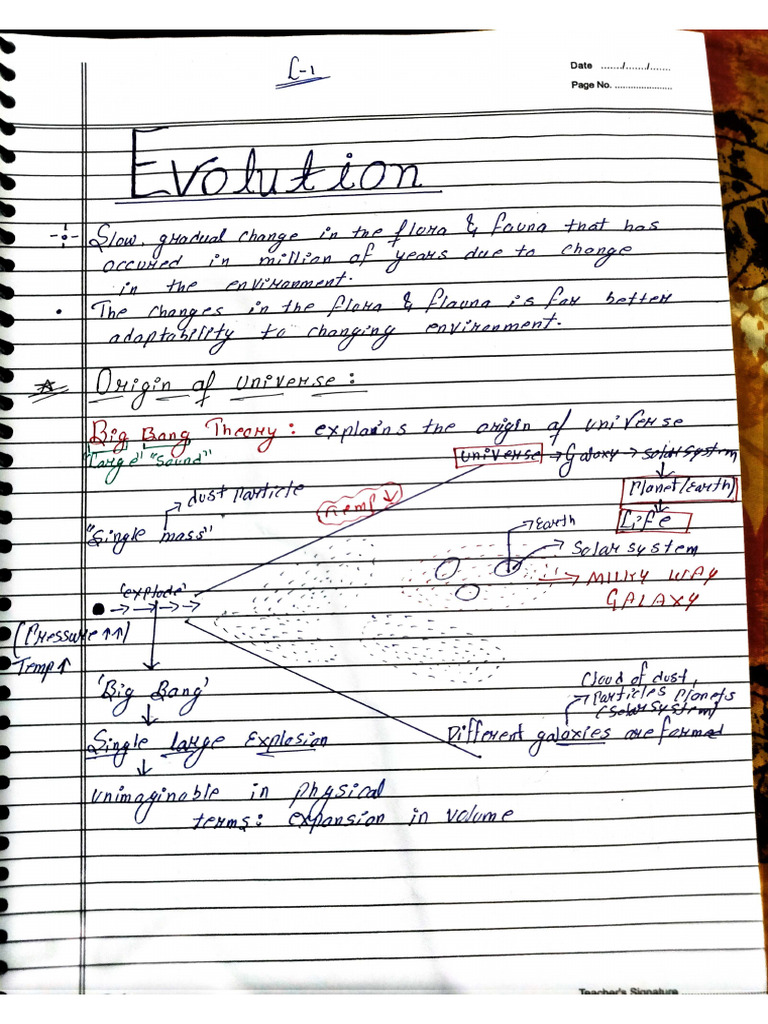 L-1
Date ......./......./.......
Page No. ......................
Evolution
Slow, gradual change in the flora & fauna that has
occured in million of years due to change
in the environment.
• The changes in the flora & flauna is for better
adaptability to changing environment.
Origin of universe:
Big Bang Theory: explains the origin of universe
"Large" "Sound"
universe → Galaxy → solar system
Planet (Earth)
Life
dust particle
"Single mass"
Temp ↓
Earth
Solar system
MILKY WAY
GALAXY
'explode'
(Pressure ↑↑)
Temp ↑
'Big Bang'
Cloud of dust,
Particles Planets
(Solar system)
Different galaxies are formed
Single large Explosion
unimaginable in physical
terms: expansion in volume
Teacher's Signature